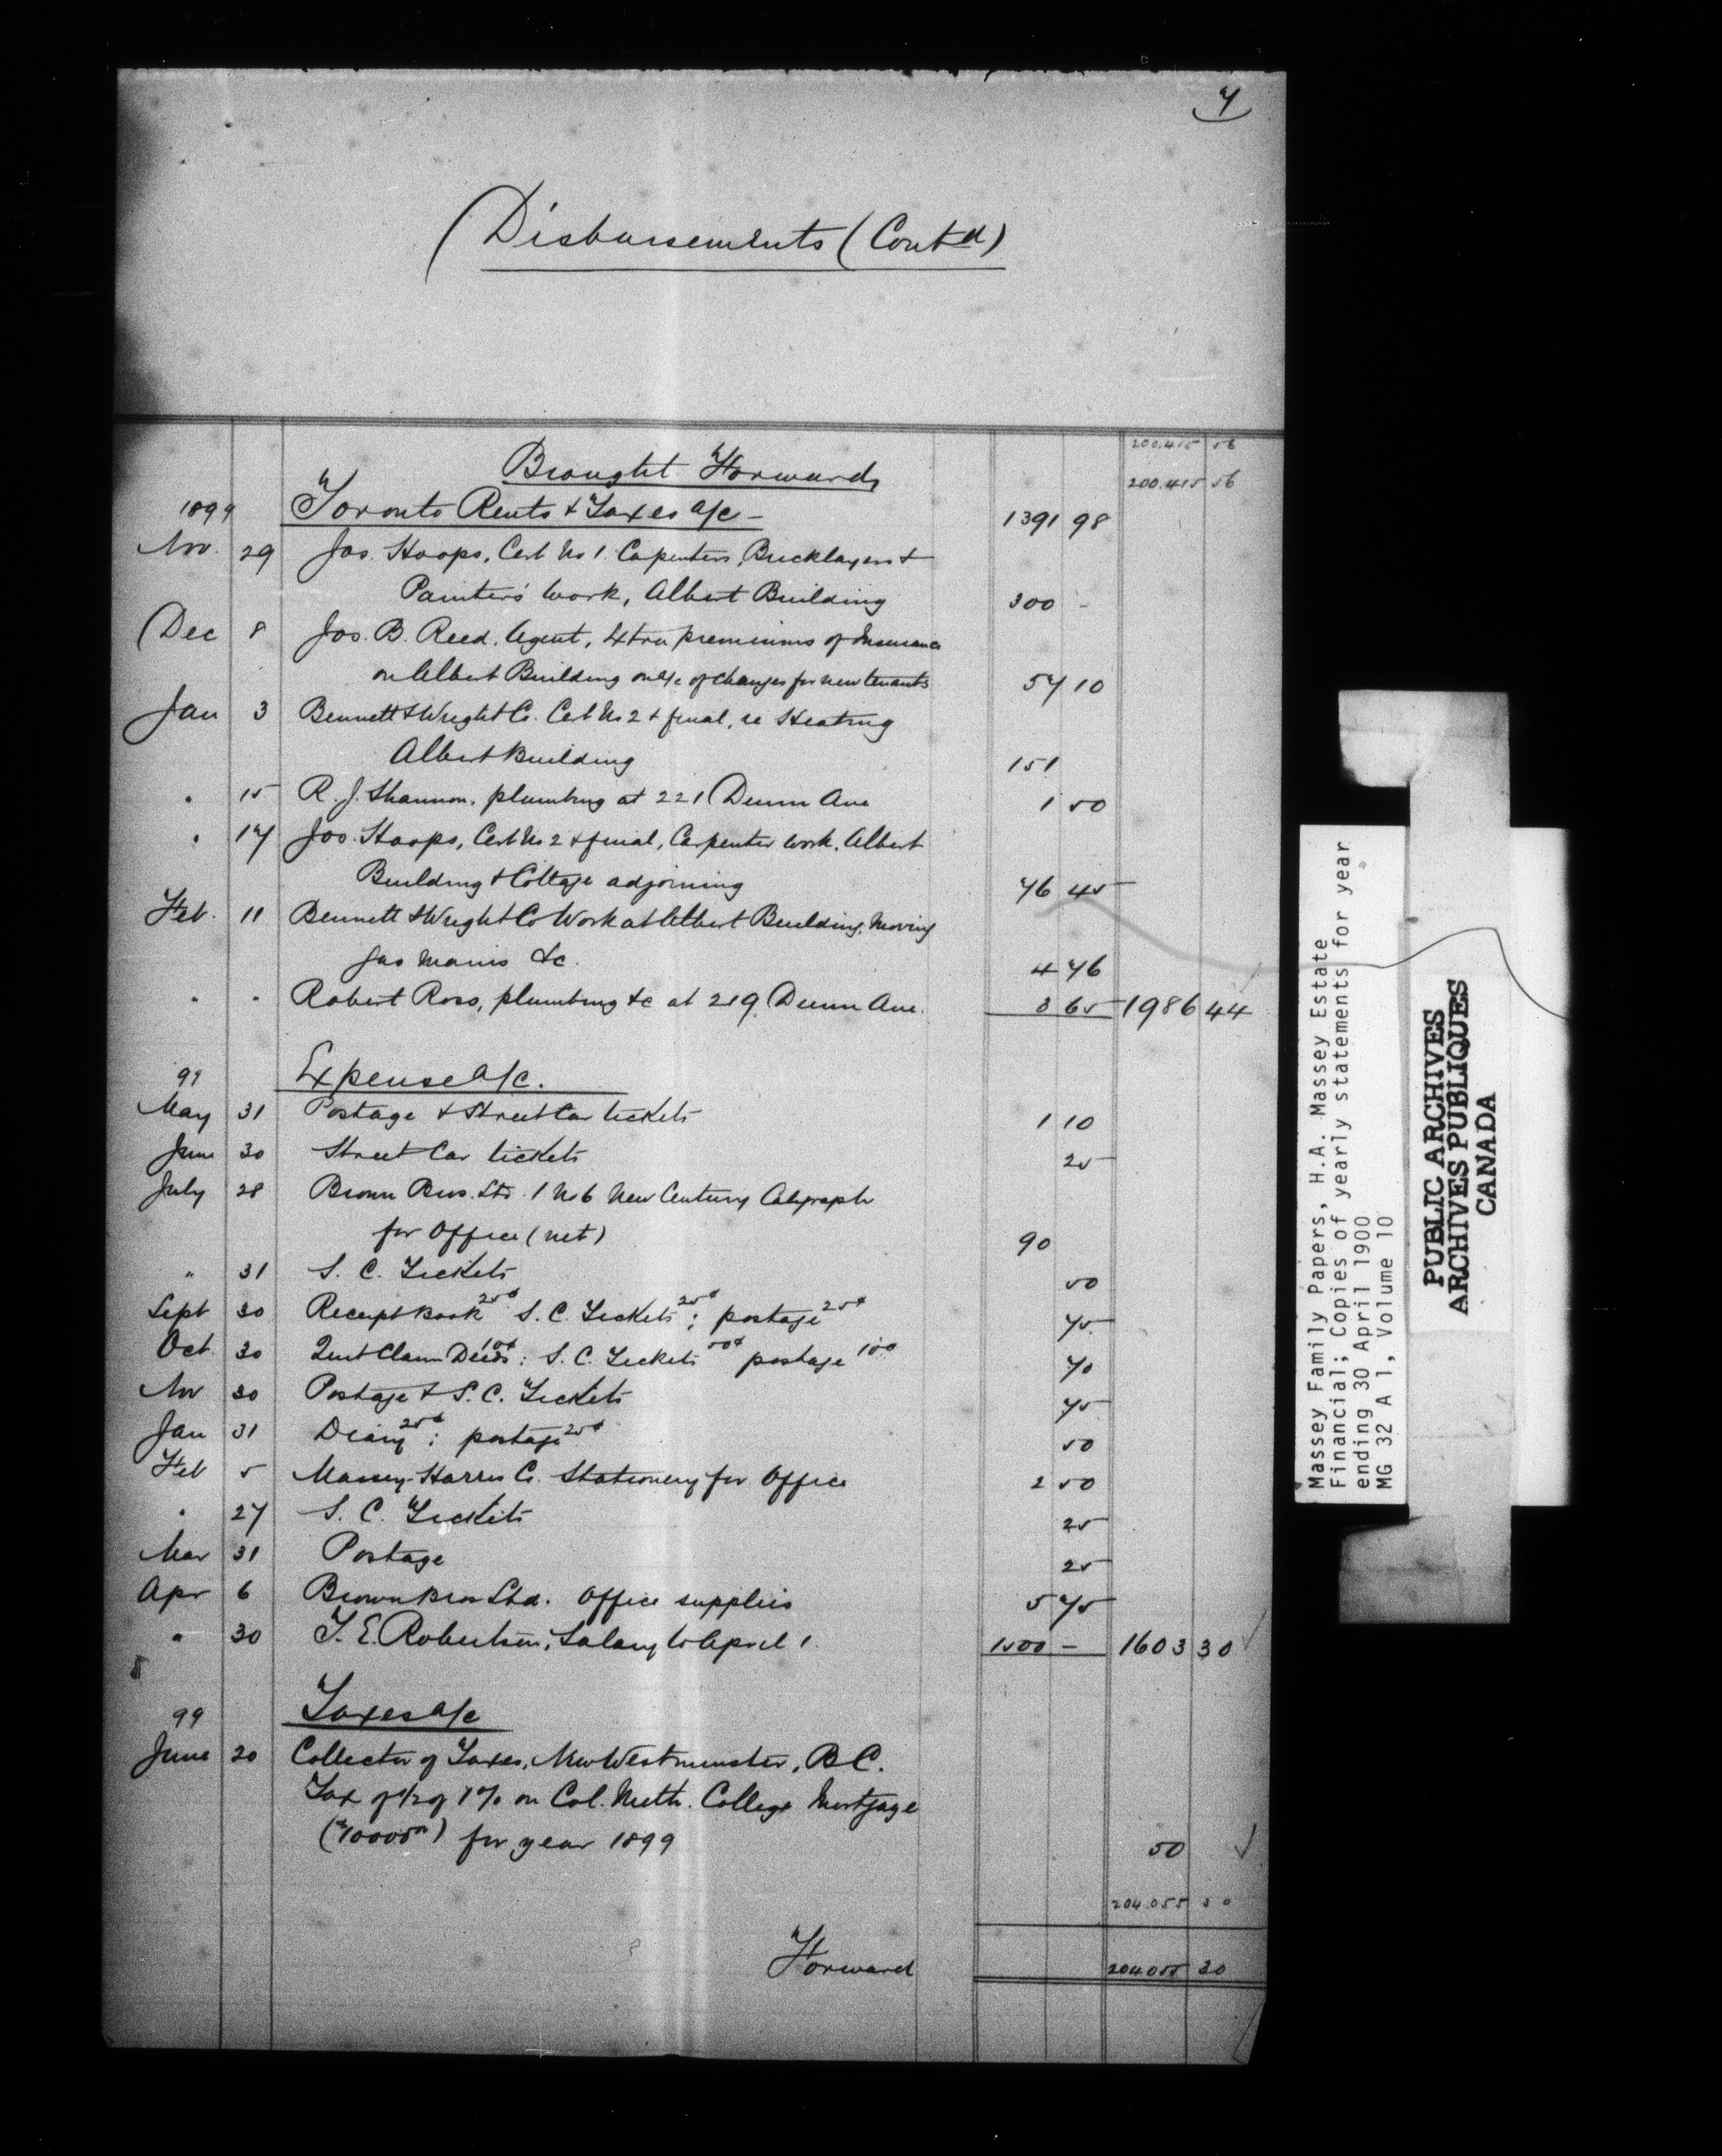 7
Disbursements (Contd)
200.415 56
Brought Forward 200.415 56
1899 Toronto Rents & Taxes a/c - 1391 98
Nov. 29 Jas. Hoops, Cert No 1. Carpenters, Bricklayers &
Painters' work, Albert Building 300 -
Dec 8 Jos. B. Reed. Agent, Extra premiums of Insurance
on Albert Building on a/c of changes for new tenants 57 10
Jan 3 Bennett & Wright Co. Cert No 2 & final, re Heating
Albert Building 151
" 15 R. J. Shannon. plumbing at 221 Dunn Ave 1 50
" 17 Jas. Hoops, Cert No 2 & final, Carpenter work. Albert
Building & Cottage adjoining 76 45
Feb. 11 Bennett & Wright Co Work at Albert Building, Moving
gas mains &c. 4 76
" " Robert Ross, plumbing &c at 219 Dunn Ave. 3 65 1986 44
99 Expense a/c.
May 31 Postage & Street Car tickets 1 10
June 30 Street Car tickets 25
July 28 Brown Bros. Ltd. 1 No 6 New Century Caligraph
for Office (net) 90
" 31 S. C. Tickets 50
Sept 30 Receipt book 25¢ S. C. Tickets 25¢; postage 25¢ 75
Oct. 30 Quit Claim Deeds 10¢: S. C. Tickets 50¢ postage 10¢ 70
Nov 30 Postage & S. C. Tickets 75
Jan 31 Diary 25¢; postage 25¢ 50
Feb 5 Massey-Harris Co. Stationery for Office 2 50
" 27 S. C. Tickets 25
Mar 31 Postage 25
Apr 6 Brown Bros Ltd. Office supplies 5 75
" 30 T. E. Robertson, Salary to April 1. 1500 - 1603 30
99 Taxes a/c
June 20 Collector of Taxes, New Westminster, B C.
Tax of 1/2 of 1% on Col. Meth. College Mortgage
($10000 00) for year 1899 50
204.055 30
Forward 204.055 30
Massey Family Papers, H.A. Massey Estate
Financial; Copies of yearly statements for year
ending 30 April 1900
MG 32 A 1, Volume 10
PUBLIC ARCHIVES
ARCHIVES PUBLIQUES
CANADA